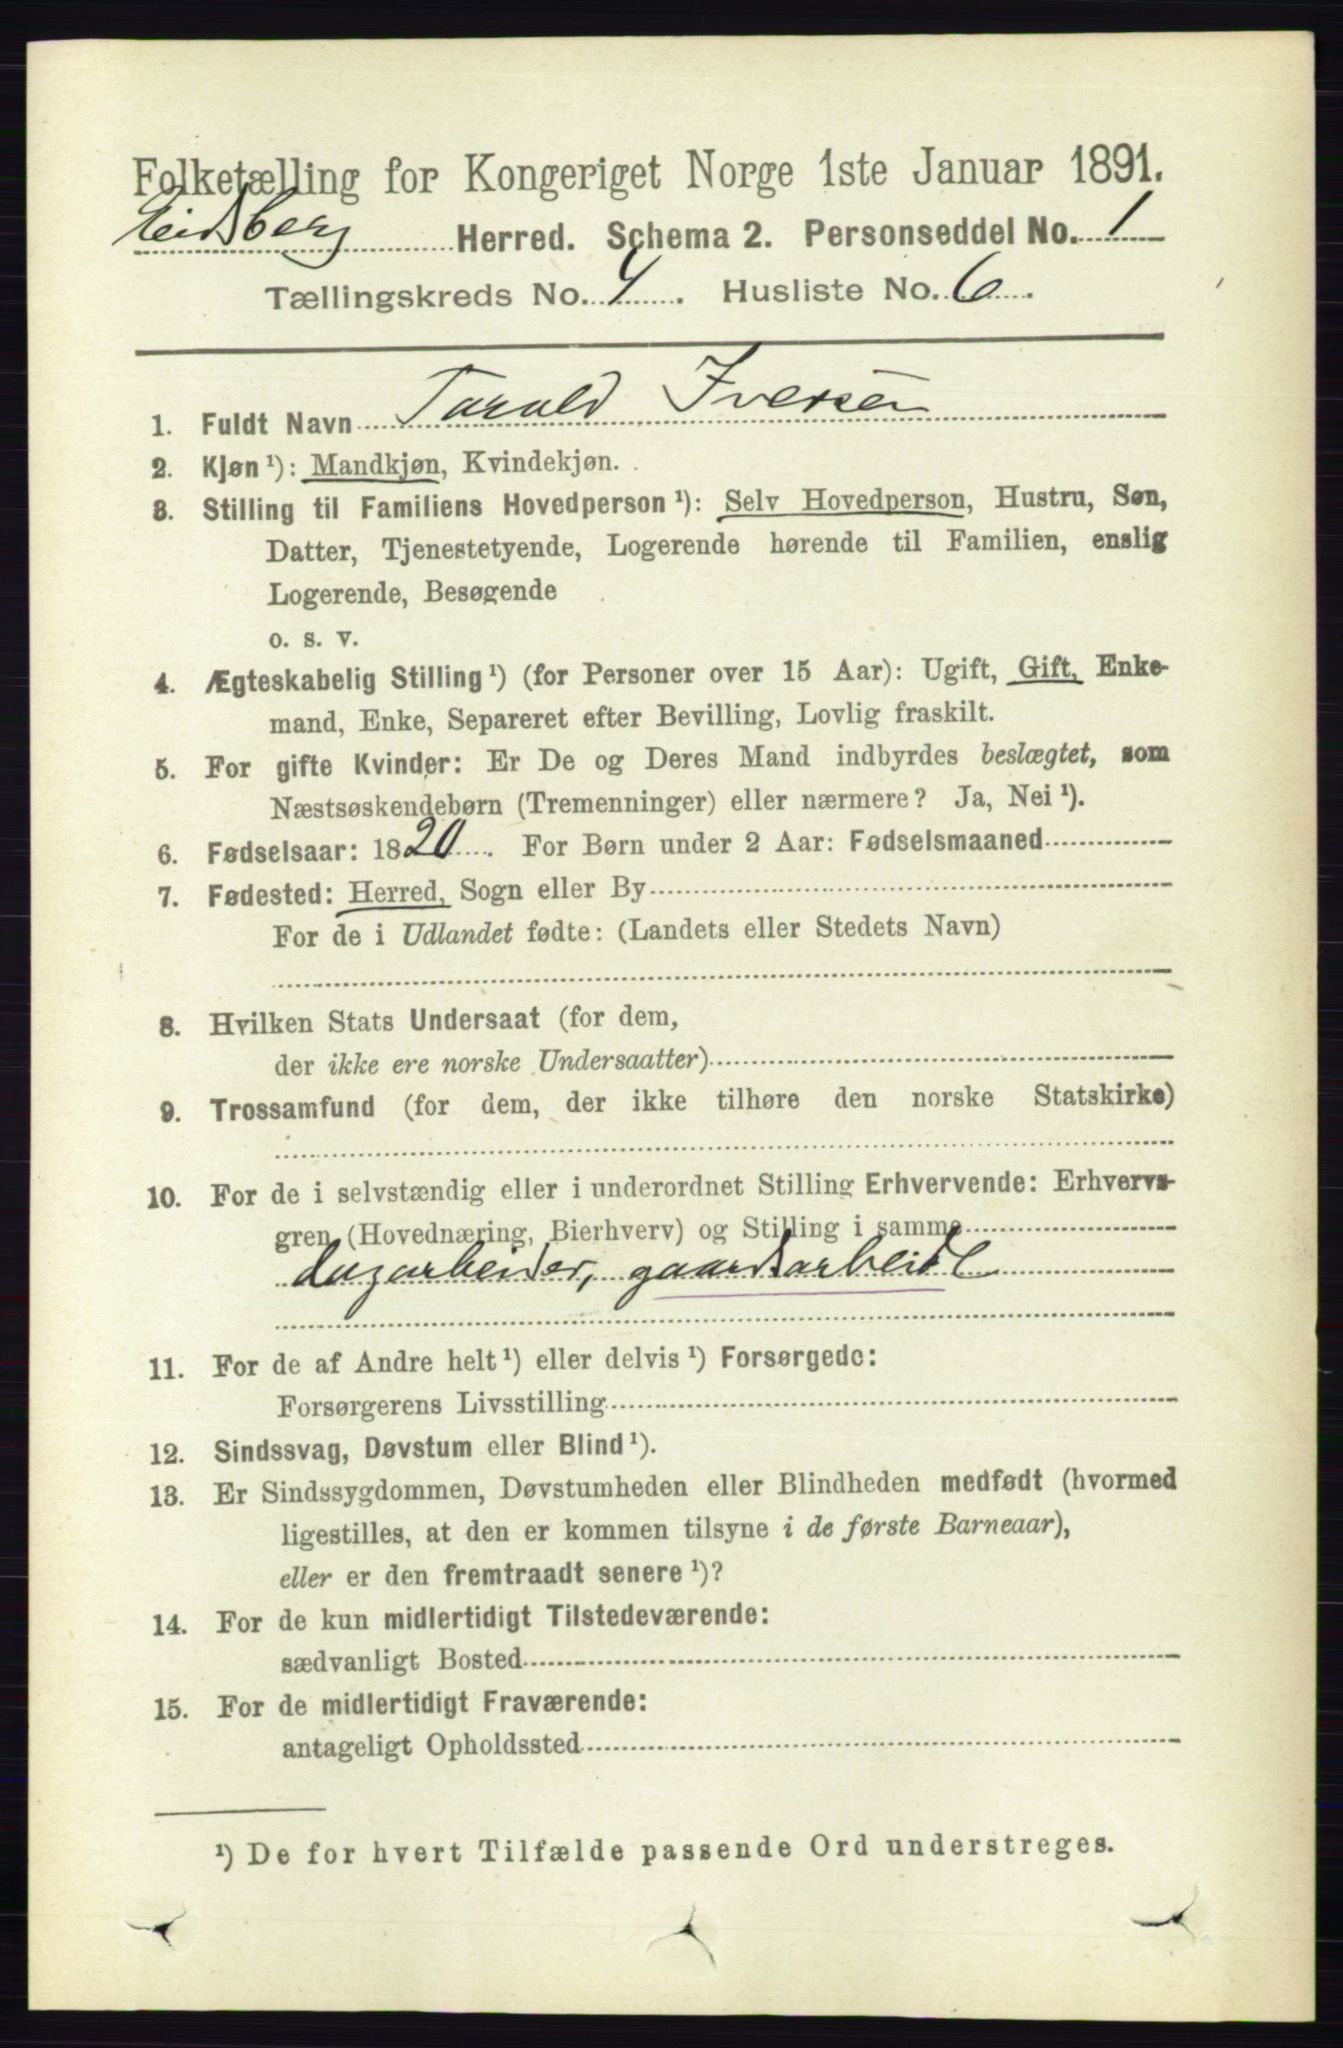 Folketælling for Kongeriget Norge 1ste Januar 1891.
Eidsberg Herred. Schema 2. Personseddel No. 1
Tællingskreds No. 4. Husliste No. 6.
1. Fuldt Navn Tarald Iversen
2. Kjøn ¹): Mandkjøn, Kvindekjøn.
3. Stilling til Familiens Hovedperson ¹): Selv Hovedperson, Hustru, Søn,
Datter, Tjenestetyende, Logerende hørende til Familien, enslig
Logerende, Besøgende
o. s. v.
4. Ægteskabelig Stilling ¹) (for Personer over 15 Aar): Ugift, Gift, Enke-
mand, Enke, Separeret efter Bevilling, Lovlig fraskilt.
5. For gifte Kvinder: Er De og Deres Mand indbyrdes beslægtet, som
Næstsøskendebørn (Tremenninger) eller nærmere? Ja, Nei ¹).
6. Fødselsaar: 1820. For Børn under 2 Aar: Fødselsmaaned
7. Fødested: Herred, Sogn eller By
For de i Udlandet fødte: (Landets eller Stedets Navn)
8. Hvilken Stats Undersaat (for dem,
der ikke ere norske Undersaatter)
9. Trossamfund (for dem, der ikke tilhøre den norske Statskirke)
10. For de i selvstændig eller i underordnet Stilling Erhvervende: Erhvervs-
gren (Hovednæring, Bierhverv) og Stilling i samme
dagarbeider, gaardsarbeide
11. For de af Andre helt ¹) eller delvis ¹) Forsørgede:
Forsørgerens Livsstilling
12. Sindssvag, Døvstum eller Blind ¹).
13. Er Sindssygdommen, Døvstumheden eller Blindheden medfødt (hvormed
ligestilles, at den er kommen tilsyne i de første Barneaar),
eller er den fremtraadt senere ¹)?
14. For de kun midlertidigt Tilstedeværende:
sædvanligt Bosted
15. For de midlertidigt Fraværende:
antageligt Opholdssted
¹) De for hvert Tilfælde passende Ord understreges.